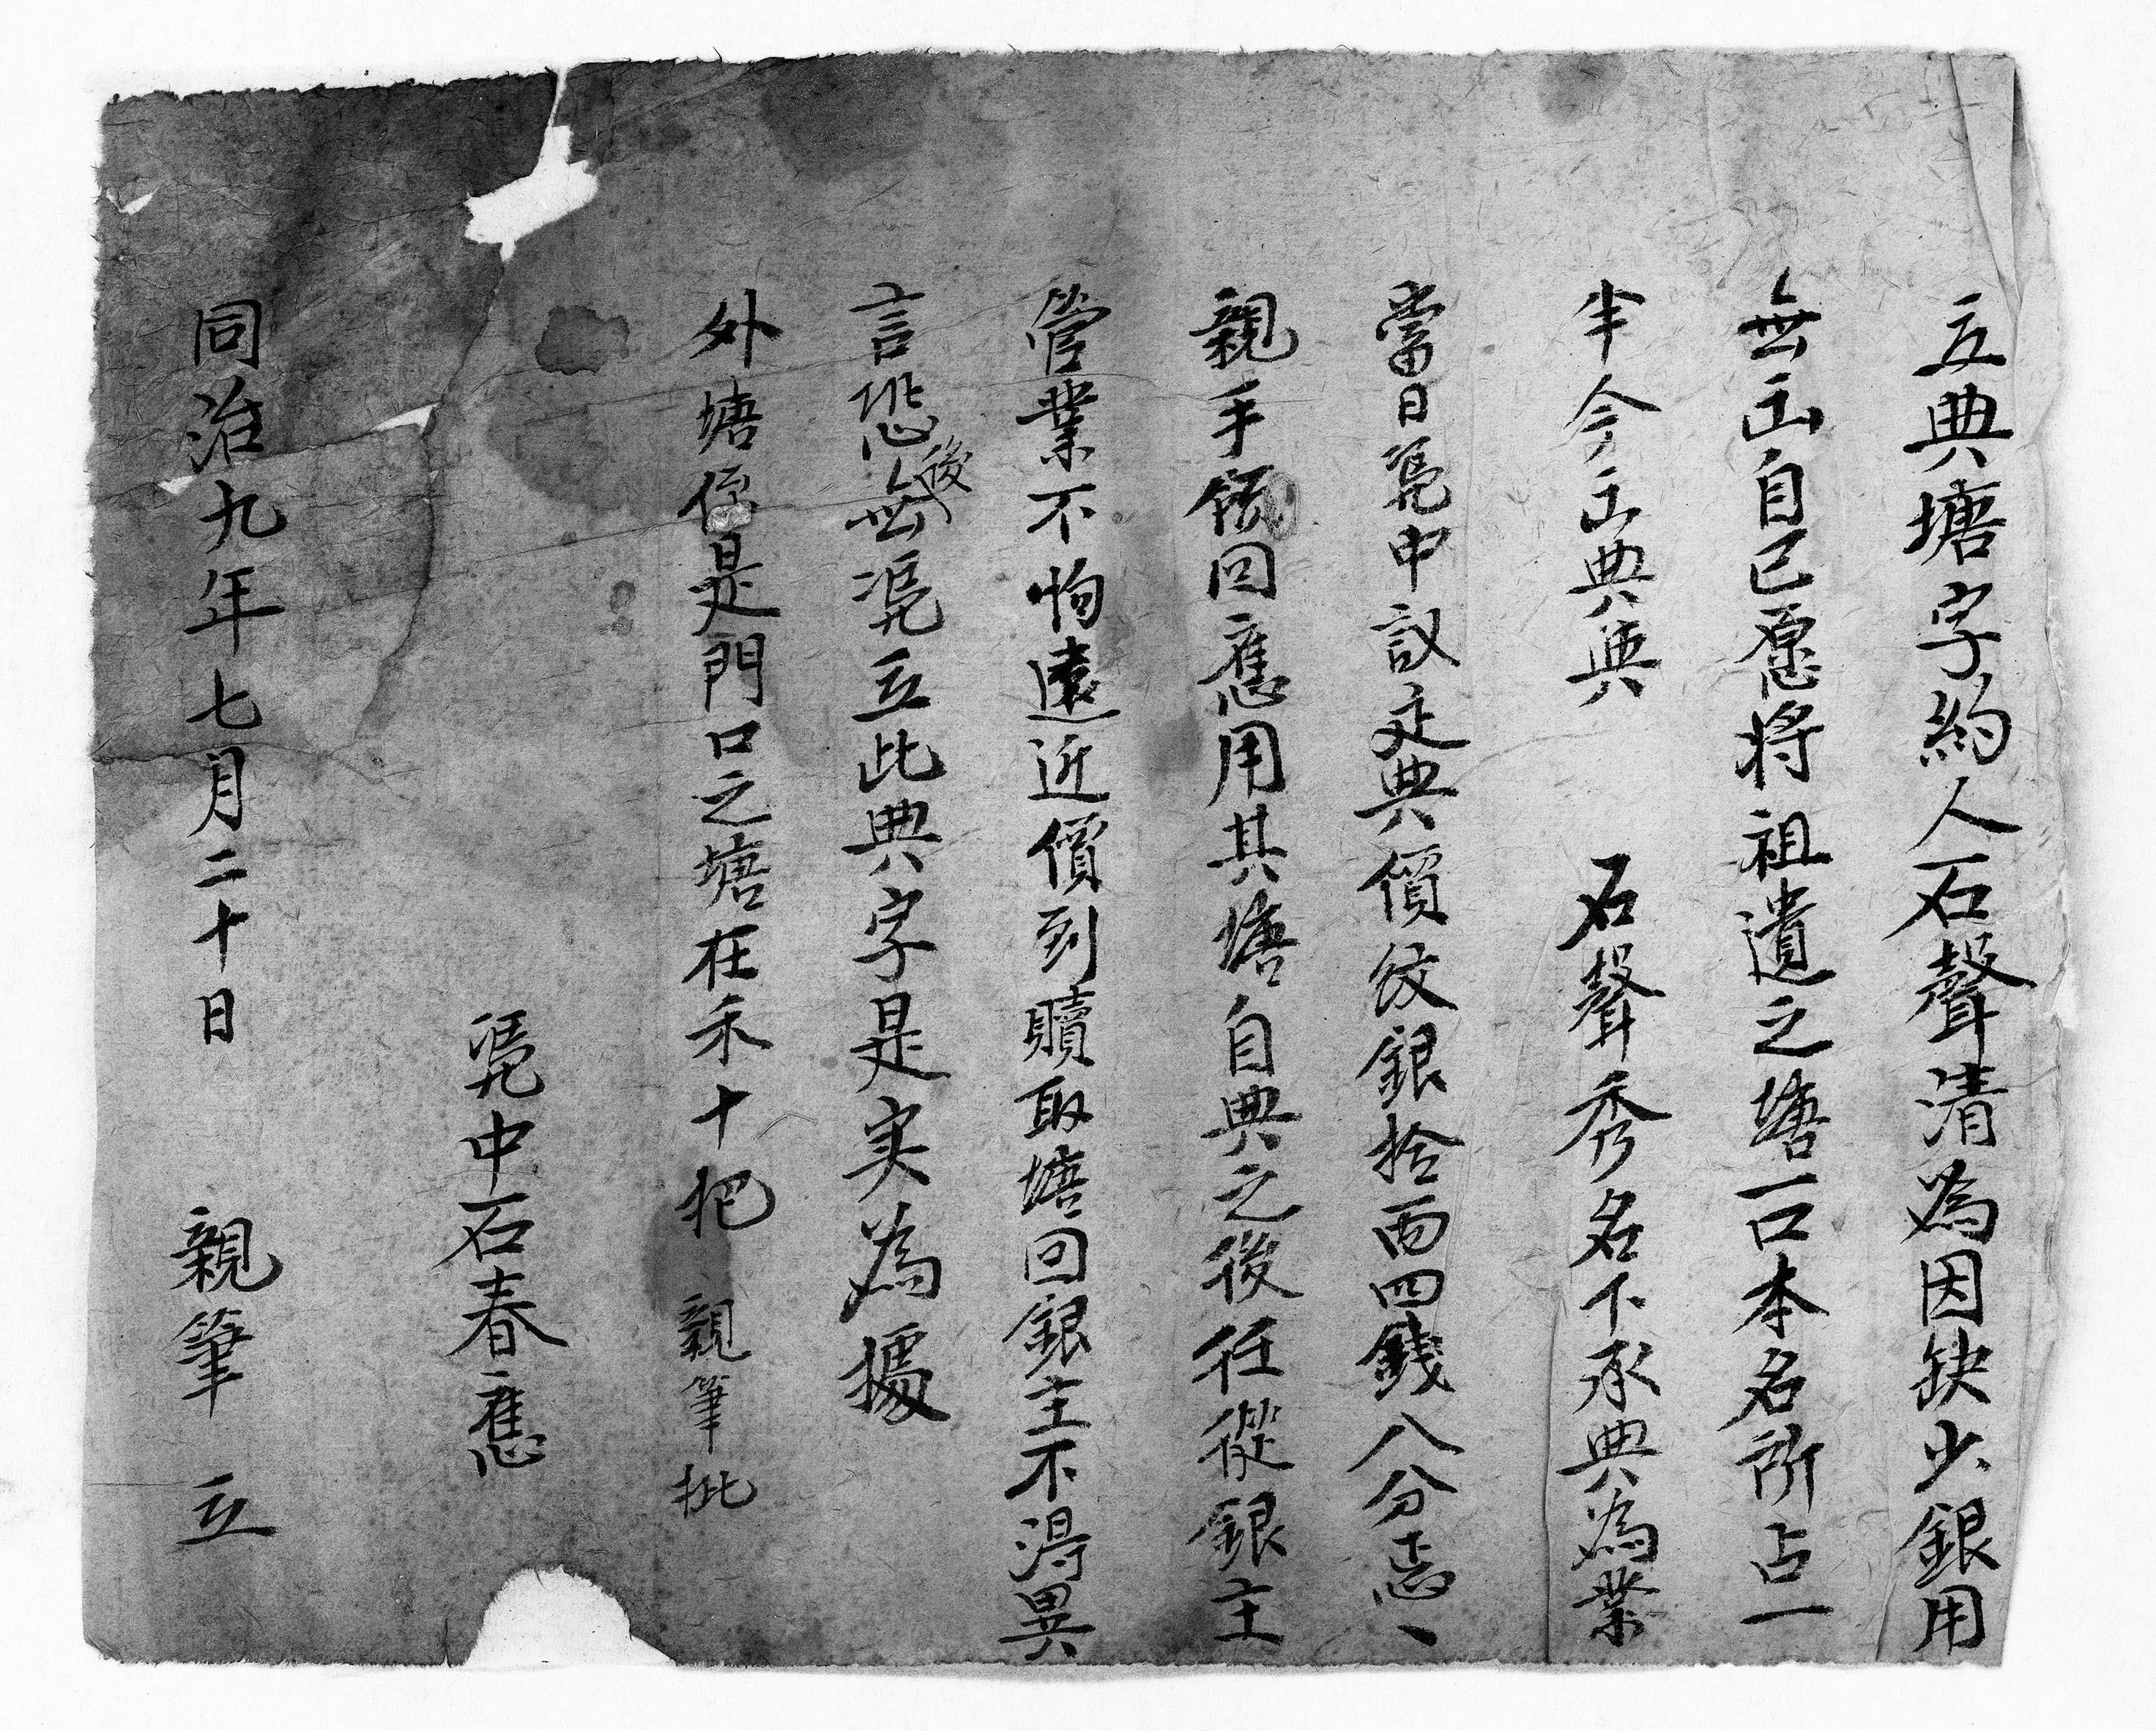 立典塘字約人石聲清為因缺少銀用
無出自己愿將祖遺之塘一口本名所占一
半今出典與 石聲秀名下承典為業
當日凴中議定典價紋銀拾両四錢八分忐、
親手領回應用其塘自典之後任從銀主
管業不怕遠近價到贖取塘回銀主不淂異
言恐後無凴立此典字是实為據
外塘係是門口之塘在禾十把 親筆批
凴中石春應
同治九年七月二十日 親筆 立